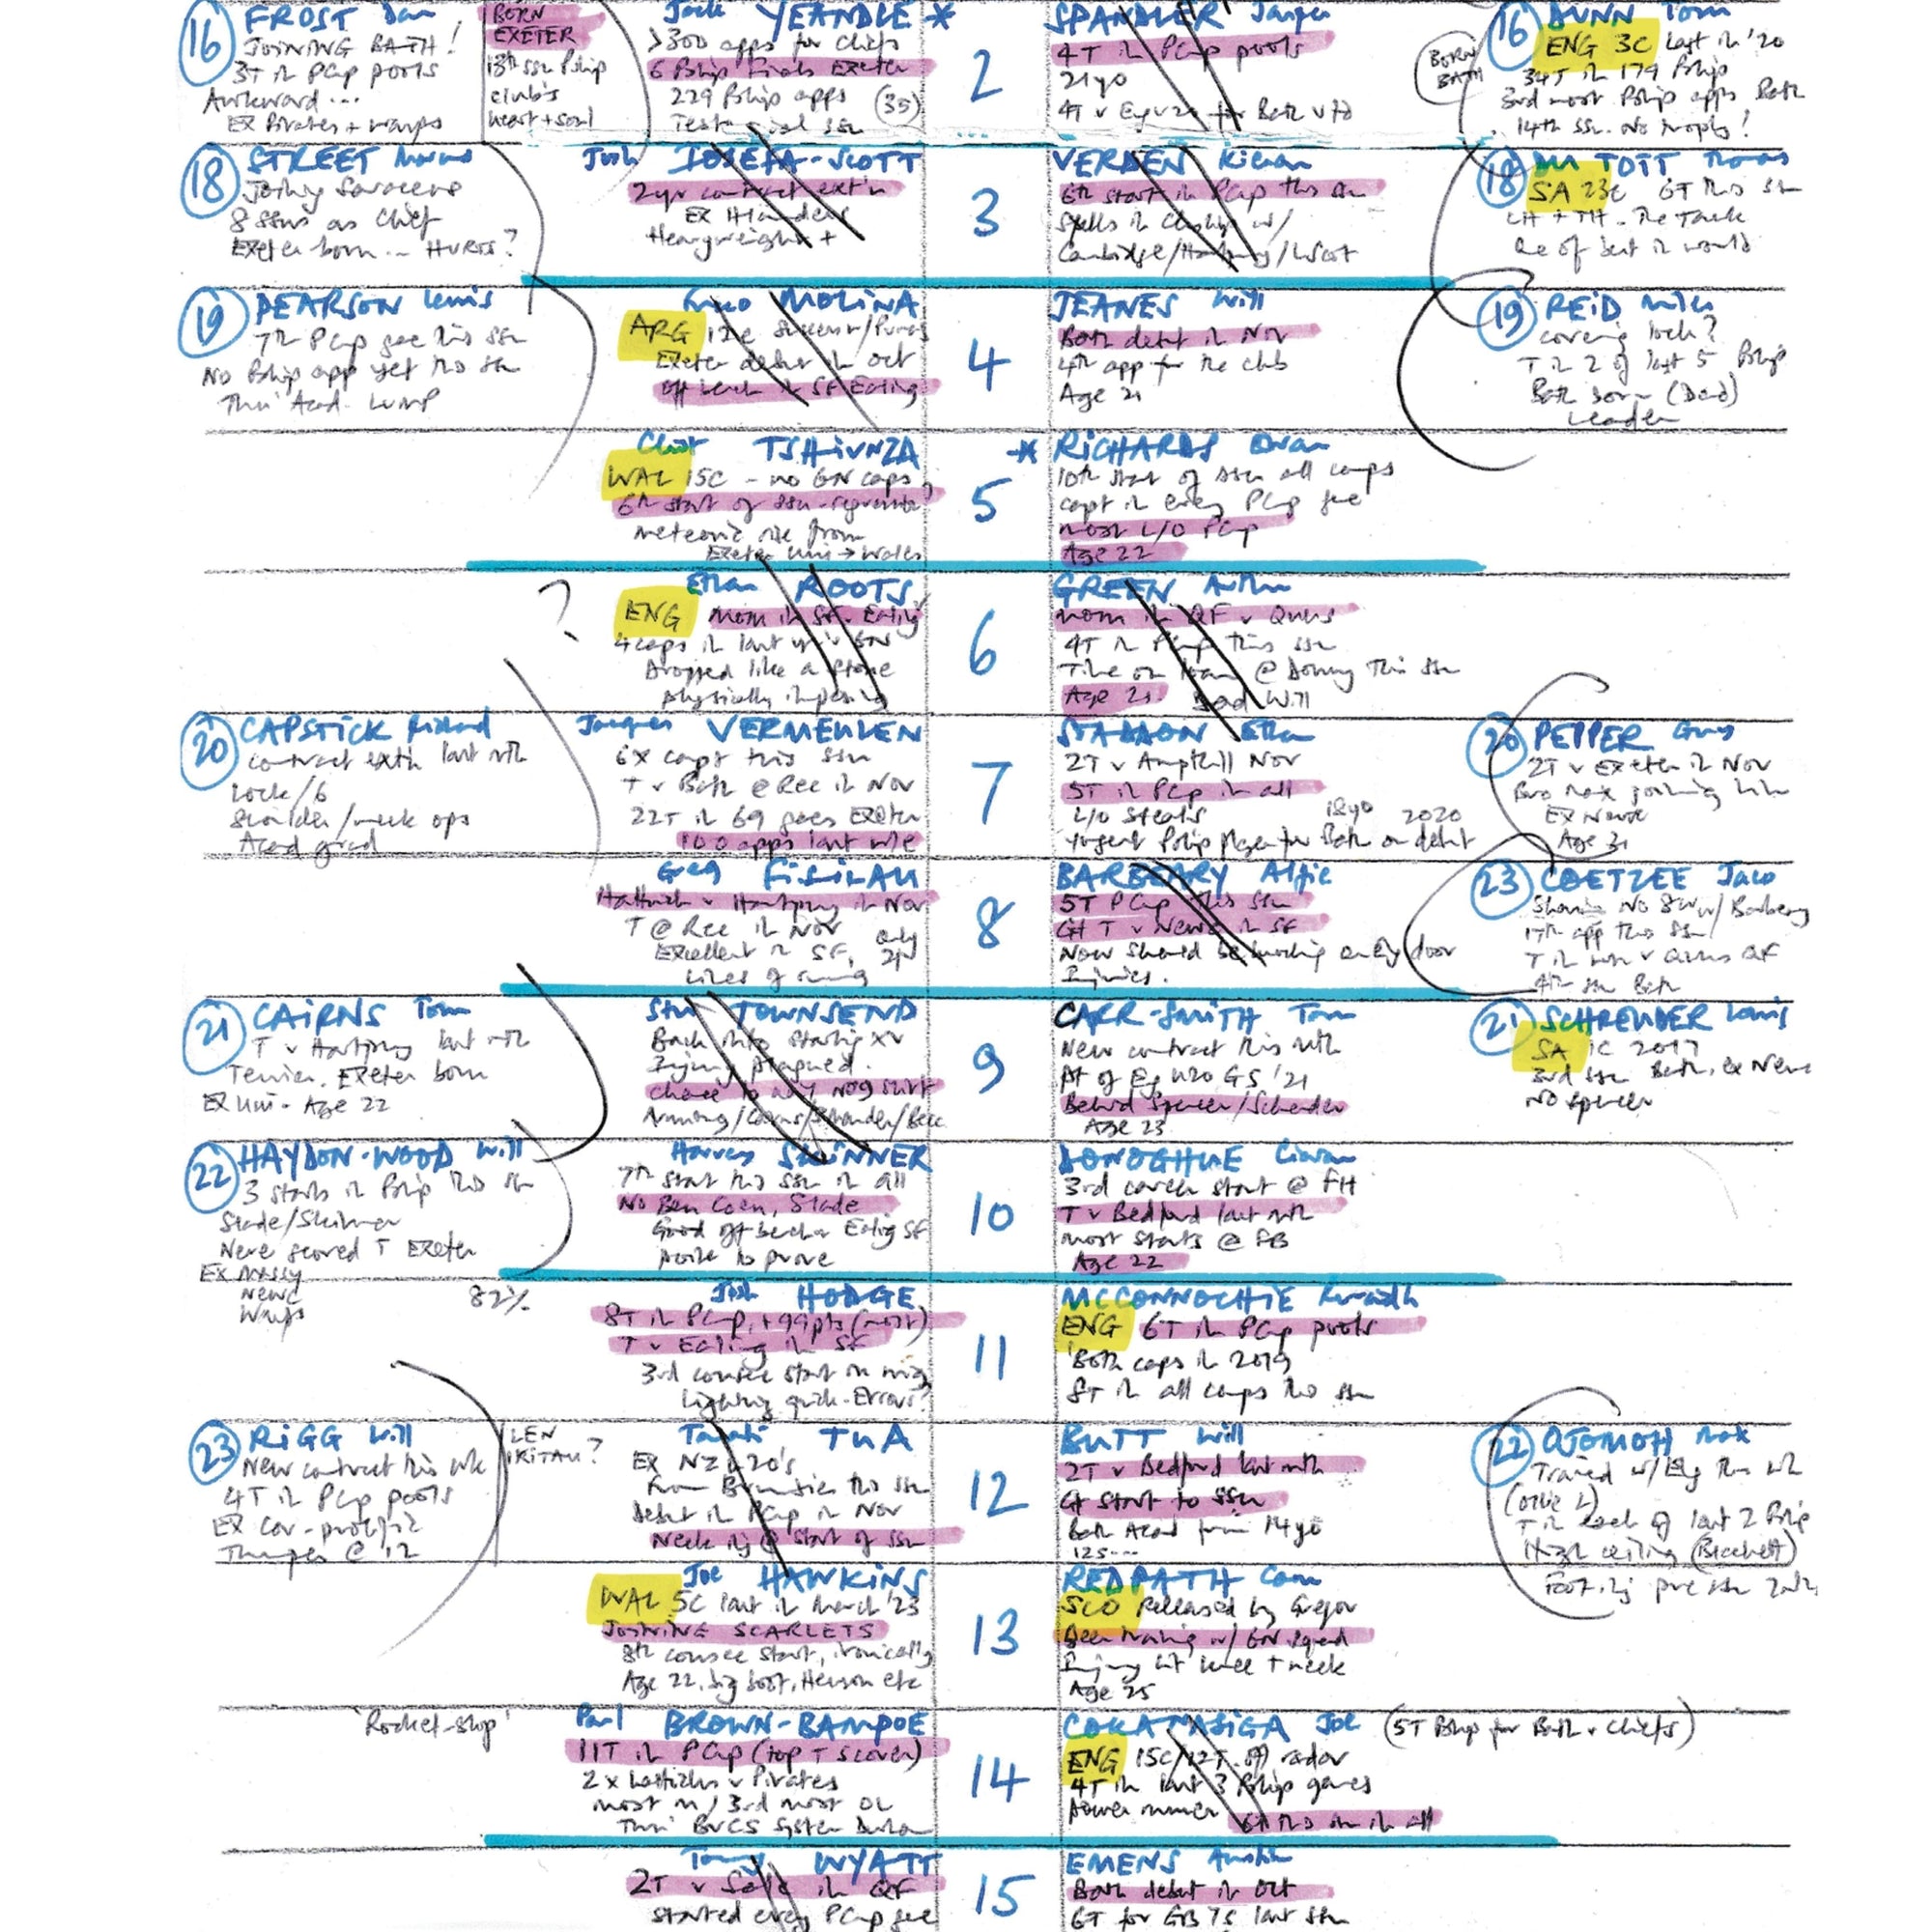 16 FROST Dan
JOINING BATH!
3T in PCup pools
Awkward ...
Ex Pirates + Wasps
BORN
EXETER
13th ssn Pship
club's
heart + soul
Jack YEANDLE *
>300 apps for Chiefs
6 Pship Finals Exeter
229 Pship apps (35)
Testimonial ssn
2
SPANDLER Jasper
4T in PCup pools
21yo
4T v Eng u20 for Bath Utd
BORN
BATH
16 DUNN Tom
ENG 3C last in '20
34T in 179 Pship
3rd most Pship apps Bath
14th ssn. No trophy!
18 STREET Marcus
Joining Saracens
8 ssns as Chief
Exeter born ... HURTS?
Josh IOSEFA-SCOTT
2yr contract ext'n
Ex Highlanders
Heavyweight +
3
VERDEN Kieran
6th start in PCup this ssn
Spells in Chship w/
Cambridge/Hartpury/LScot
18 DU TOIT Thomas
SA 23c 6T this ssn
LH + TH - The Tank
One of best in world
19 PEARSON Lewis
7th PCup gme this ssn
No Pship app yet this ssn
Thru' Acad. LUMP
Franco MOLINA
ARG
Exeter debut in Oct
Off bench in SF Ealing
4
JEANES Will
Bath debut in Nov
4th app for the club
Age 21
19 REID Miles
covering lock?
T in 2 of last 5 Pship
Bath born (Dad)
Leader
Christ TSHIUNZA
WAL 15C - no 6N caps
6th start of ssn -
meteoric rise from
Exeter Uni → Wales
5
* RICHARDS Ewan
10th start of ssn all comps
capt in every PCup gme
most L/O PCup
Age 22
?
Ethan ROOTS
ENG Mom in SF v Ealing
4 caps in last yr's 6N
Dropped like a stone
physically imposing
6
GREEN Arthur
Mom in QF v Quins
4T in PCup this ssn
Time on loan @ Donny this ssn
Age 21 Dad Will
20 CAPSTICK Richard
contract extn last mth
Lock/6
Shoulder/neck ops
Acad grad
Jacques VERMEULEN
6x capt this ssn
T v Bath @ Rec in Nov
22T in 69 games Exeter
100 apps last w/e
7
STADDON Ethan
2T v Ampthill Nov
5T in PCup in all
L/O Steals 18yo 2020
Yngest Pship player for Bath on debut
20 PEPPER Guy
2T v Exeter in Nov
Bro Max joining him
Ex Newc
Age 21
Greg FISILAU
Hattrick v Hartpury in Nov
T @ Rec in Nov
Excellent in SF, only 21
Lines of running
8
BARBEARY Alfie
5T PCup this ssn
GH T v Newc in SF
Now should be knocking on Eng door
Injuries.
23 COETZEE Jaco
Sharing No 8 w/ Barbeary
17th app this ssn
T in win v Quins QF
4th ssn Bath
21 CAIRNS Tom
T v Hartpury last mth
Terrier. Exeter born
Ex Uni - Age 22
Stu TOWNSEND
Back into starting XV
Injury plagued.
chance to nail No9 shirt
9
CARR-SMITH Tom
New contract this mth
pt of Eng U20 GS '21
Behind Spencer/Schreuder
Age 23
21 SCHREUDER Louis
SA 1C 2017
3rd ssn Bath, ex Newc
No Spencer
22 HAYDON-WOOD Will
3 starts in Pship this ssn
Slade/Skinner
Never scored T Exeter
Ex Massy
Newc
Wasps
82%
Harvey SKINNER
7th start this ssn in all
No Ben Coen, Slade
Good off bench v Ealing SF
point to prove
10
DONOGHUE Ciaran
3rd career start @ FH
T v Bedford last mth
most starts @ FB
Age 22
Josh HODGE
8T in PCup, +99pts (most)
T v Ealing in SF
3rd consec start on wing
Lightning quick - Errors?
11
MCCONNOCHIE Ruaridh
ENG 6T in PCup pools
Both caps in 2019
8T in all comps this ssn
23 RIGG Will
New contract this wk
4T in PCup pools
Ex Cov - prolific
Thumper @ 12
LEN
IKITAU?
Tamati TUA
Ex NZ u20's
from Brumbies this ssn
Debut in PCup in Nov
Neck inj @ start of ssn
12
BUTT Will
2T v Bedford last mth
Gt start to ssn
Bath Acad from 14yo
125...
22 OJOMOH Max
Trained w/ Eng this wk
(Ollie L)
T in each of last 2 Pship
High ceiling (Beckett)
Foot inj pre ssn
Joe HAWKINS
WAL 5C last in March '23
JOINING SCARLETS
8th consec start, ironically
Age 22, big boot, Henson etc
13
REDPATH Cam
SCO released by Gregor
Been training w/ 6N squad
Injury hit knee + neck
Age 25
'Rocket-ship'
Paul BROWN-BAMPOE
11T in PCup (top T scorer)
2 x hattricks v Pirates
most m/ 3rd most OL
Thru' BUCS system Durham
14
COKANASIGA Joe (5T Pship for Bath v Chiefs)
ENG 15C/12T. Off radar
4T in last 3 Pship games
Power runner
6T this ssn in all
Tommy WYATT
2T v Sale in QF
started every PCup gme
15
EMENS Austin
Bath debut in Oct
6T for GB 7s last ssn